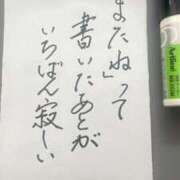 「またね」って
書いたあとが
いちばん寂しい
Artline